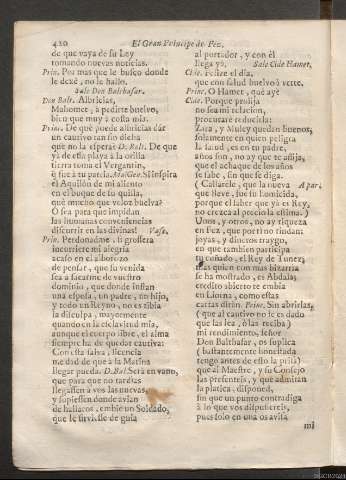 420
El Gran Principe de Fez.
de que vaya de su Ley
tomando nuevas noticias.
Prin. Por mas que le busco donde
le dexè, no le hallo.
Sale Don Balthasar.
Don Balt. Albricias,
Mahomet, à pedirte buelvo,
bien que muy à costa mia.
Prin. De què puede albricias dàr
un cautivo tan sin dicha
que no la espera? D. Balt. De que
yà de esta playa à la orilla
tierra toma el Vergantin,
que fue à tu patria.
el Aquilòn de mi aliento
en el buque de su quilla,
què mucho que veloz buelva?
O sea para que impidan
las humanas conveniencias
discurrir en las divinas! Vase.
Prin. Perdonadme, si grossera
incurriere mi alegria
acaso en el alborozo
de pensar, que su venida
sea à sacarme de vuestro
dominio, que donde instan
una esposa, un padre, un hijo,
y todo un Reyno, no es tibia
la disculpa, mayormente
quando en la esclavitud mia,
aunque el cuerpo libre, el alma
siempre ha de quedar cautiva:
Con esta salva, licencia
me dad de que à la Marina
llegar pueda. D. Bal. Serà en vano,
que para que no tardes
llegassen à vos las nuevas,
y supiessen donde avian
de hallaros, embiè un Soldado,
que le sirviesse de guia
al portador, y con èl
llega yà. Sale Cide Hamet.
Cid. Felize el dia,
que con salud buelvo à verte.
Princ. O Hamet, què ay?
Cide. Porque prolija
no sea mi relacion,
procurarè reducirla:
Zara, y Muley quedan buenos,
solamente en quien peligra
la salud, es en tu padre,
años son, no ay que te aflija,
que el achaque de los años
se sabe, sin que se diga.
( Callarèle, que la nueva Apar.
que lleve, fue su homicida,
porque el saber que yà es Rey,
no crezca al precio la estima. )
Unos, y otros, no ay riqueza
en Fez, que por ti no rindan:
joyas, y dineros traygo,
en que tambien participa
tu cuñado, el Rey de Tunez;
mas quien con mas bizarria
se ha mostrado, es Abdala;
credito abierto te embia
en Liorna, como estas
cartas diràn. Princ. Sin abrirlas,
( que al cautivo no le es dado
que las lea, ò las reciba)
mi rendimiento, señor
Don Balthasar, os suplica
( bastantemente honestada
tengo antes de esto la prisa)
que al Maestre, y su Consejo
las presenteis, y que admitan
la platica, disponed,
sin que un punto contradiga
à lo que vos dispusiereis,
pues solo en una os avisa
mi